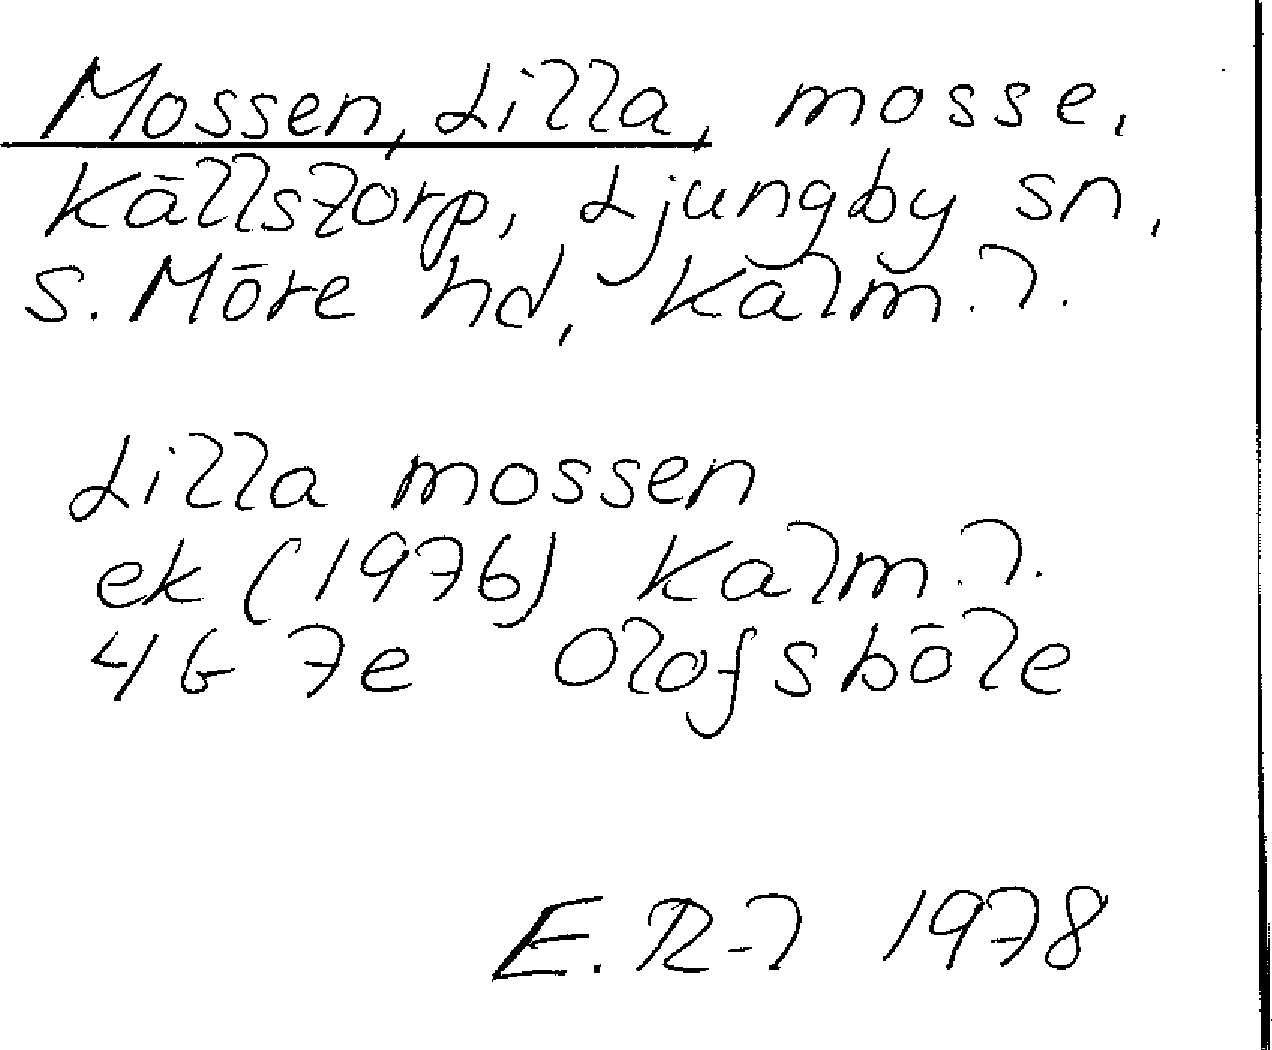 Mossen, Lilla, mosse,
Källstorp, Ljungby sn,
S. Möre hd, Kalm. l.
Lilla mossen
ek (1976) Kalm. l.
4G 7e Olofsböle
E. R-l 1978